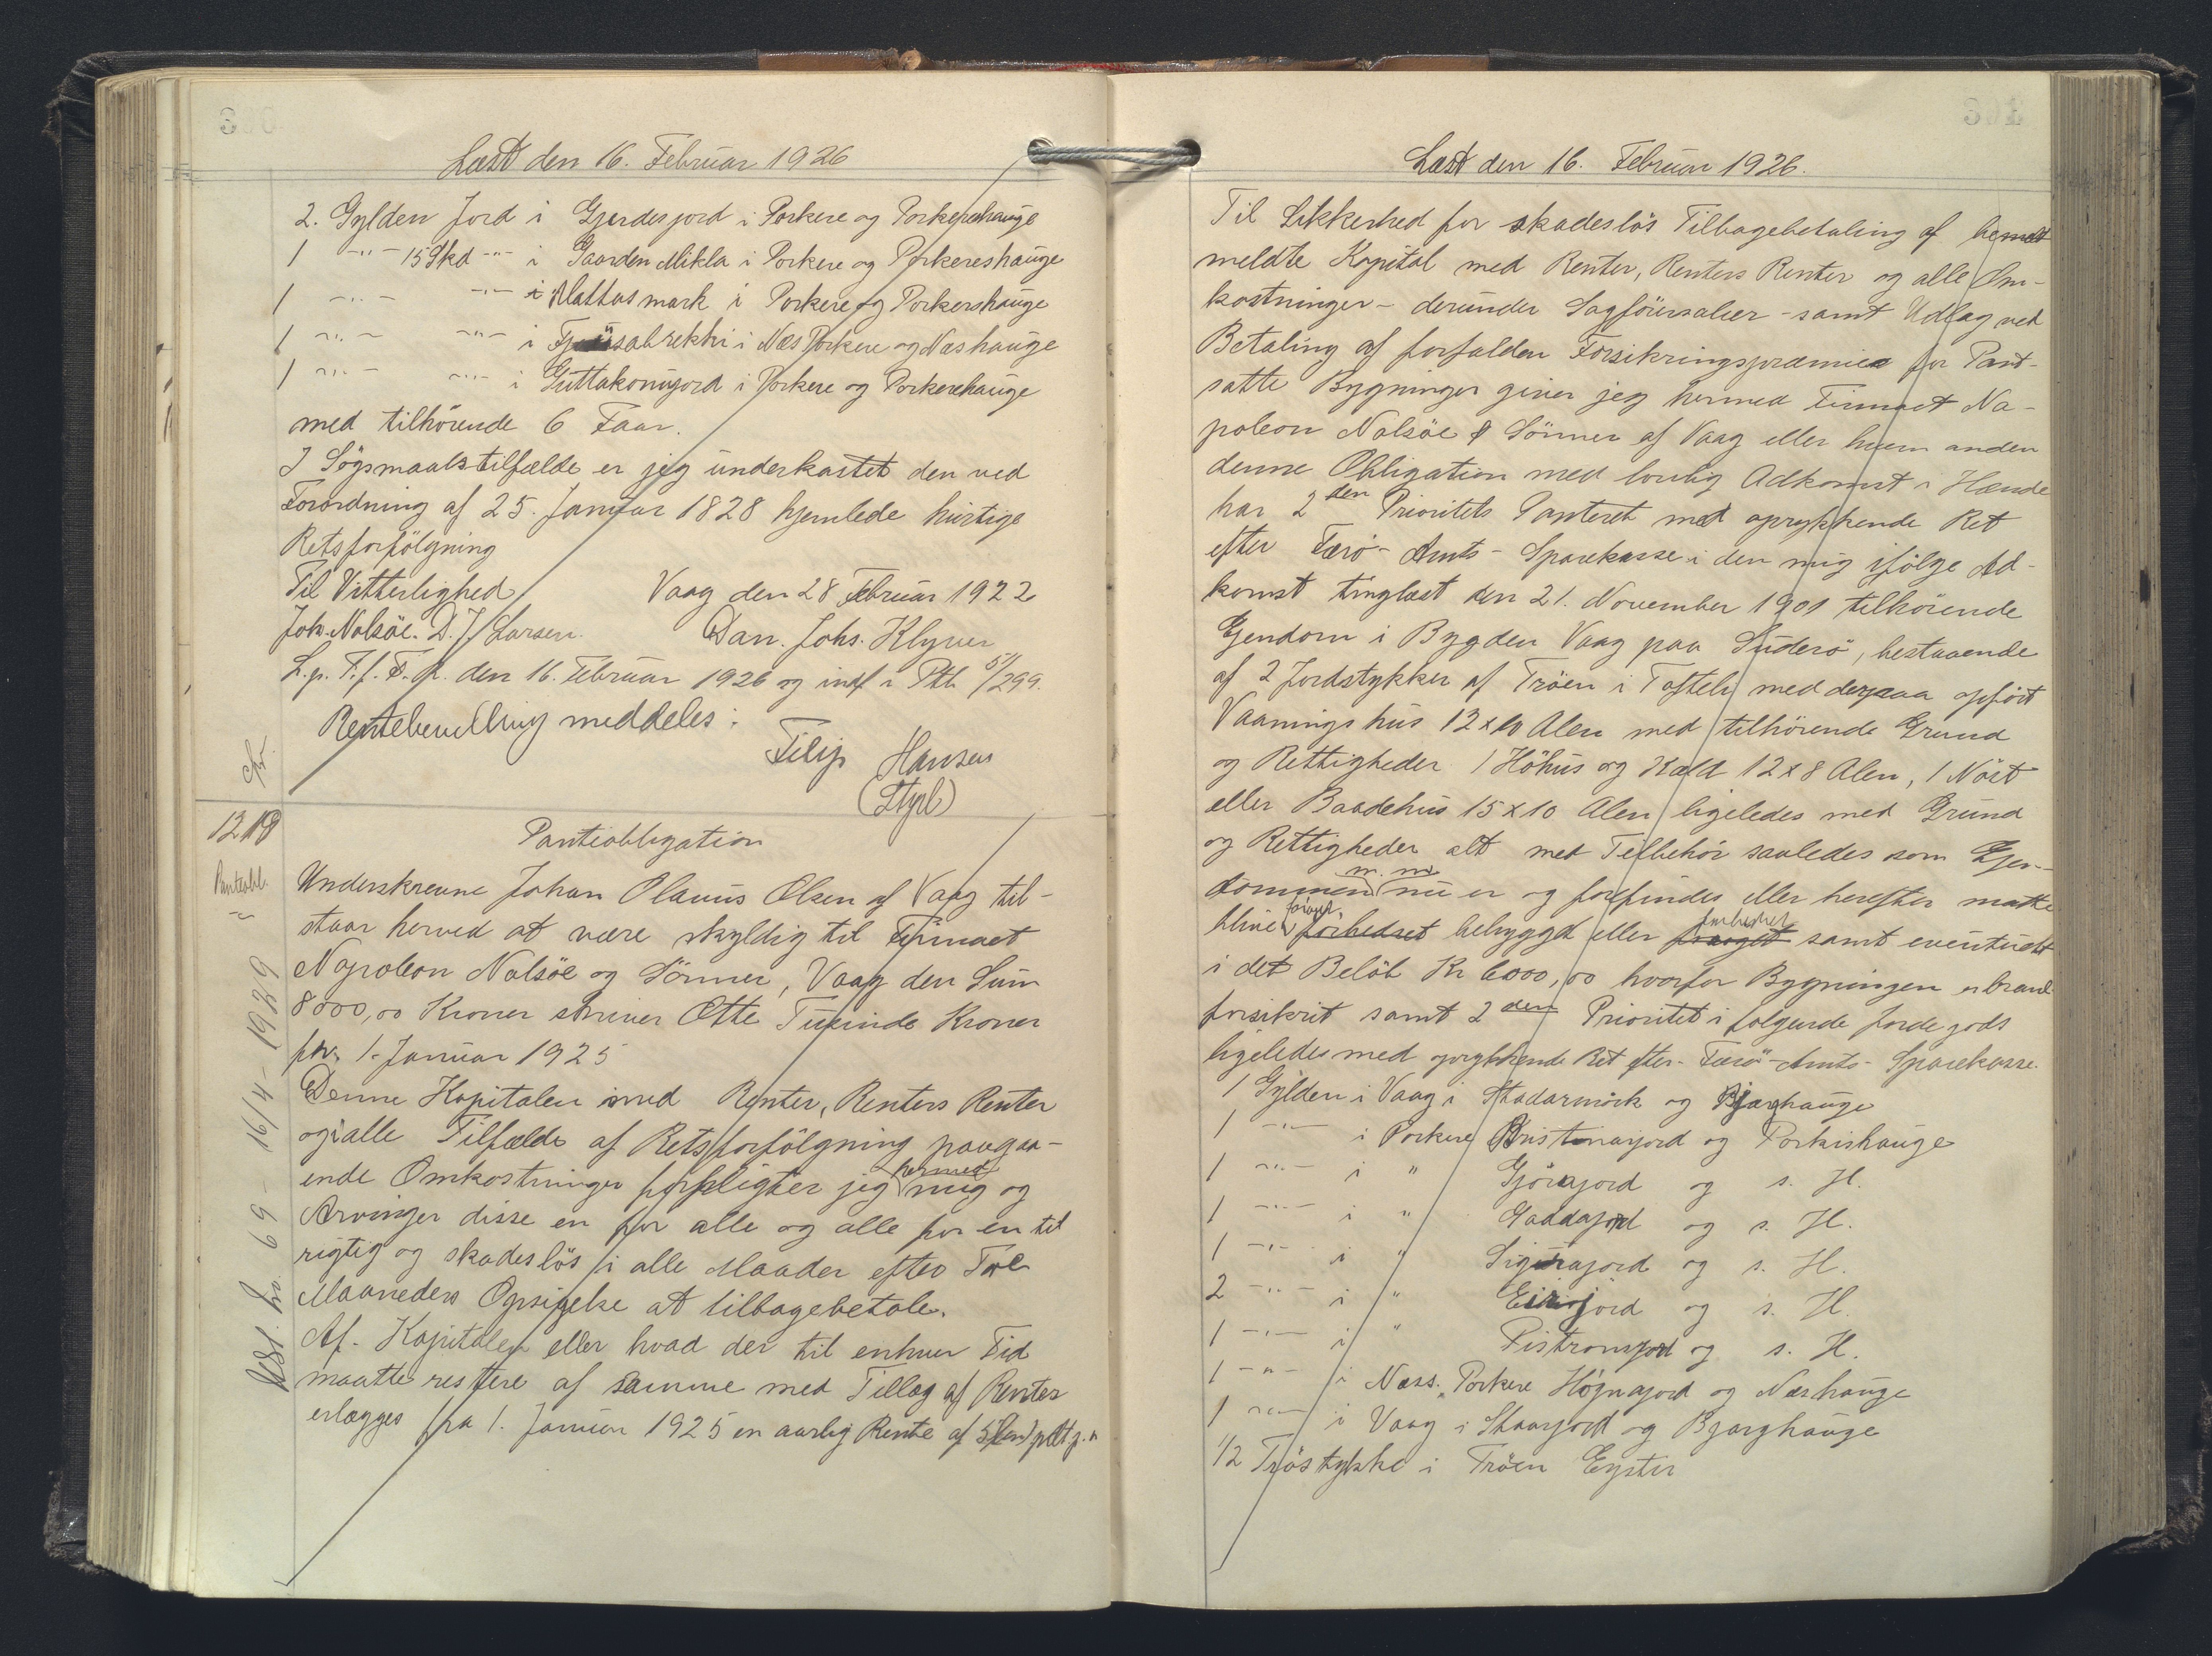 Læst den 16. Februar 1926
2. Gylden Jord i Gjerdesjord i Porkere og Porkerehauge
1 -"- 15 Skd -"- i Gaarden Mikla i Porkere og Porkereshauge
1 -"- -"- i Mattusmark i Porkere og Porkershauge
1 -"- -"- i Næs Porkere og Næshauge
1 -"- -"- i Guttakonujord i Porkere og Porkerehauge
med tilhörende 6 Faar.
I Sögsmaalstilfælde er jeg underkastet den ved
Forordning af 25. Januar 1828 hjemlede hurtige
Retsforfölgning
Til Vitterlighed Vaag den 28 Februar 1922
Joh. Nolsöe. D. J. Larsen. Dan. Johs. Klyver
L.p. T. f. F. A. den 16. Februar 1926 og indf i Ptb 5/299.
Rentebevilling meddeles.
Filip Hansen
(Styrb)
1218
Pantobl.
Pantiobligation
Underskrevne Johan Olavus Olsen af Vaag til-
staar herved at være skyldig til Firmaet
Napoleon Nolsöe og Sönner, Vaag den Sum
8000,00 Kroner skriver Otte Tusinde Kroner
pr. 1. Januar 1925
Denne Kapitalen med Renter, Renters Renter
og i alle Tilfælde af Retsforfölgning paagaa-
ende Omkostninger forpligter jeg hermed mig og
Arvinger disse en for alle og alle for en til
rigtig og skadeslös i alle Maader efter Tre
Maaneders Opsigelse at tilbagebetale.
Af Kapitalen eller hvad der til enhver Tid
maatte restere af samme med Tillæg af Renter
erlægges fra 1. Januar 1925 en aarlig Rente af 5 (fem) pct p.a
69 - 16/4 - 1929
Læst den 16. Februar 1926.
Til Sikkerhed for skadeslös Tilbagebetaling af
meldte Kapital med Renter, Renters Renter og alle Om-
kostninger - derunder Sagförersalær - samt Udlæg ved
Betaling af forfalden Forsikringspræmie for Pant-
satte Bygninger giver jeg hermed Firmaet Na-
poleon Nolsöe & Sönner af Vaag eller hvem anden
denne Obligation med lovlig Adkomst i Hænde
har 2den Prioritets Panteret med oprykkende Ret
efter Færö-Amts-Sparekasse i den mig ifölge Ad-
komst tinglæst den 21. November 1901 tilhörende
Ejendom i Bygden Vaag paa Suderö, bestaaende
af 2 Jordstykker af Tröen i Toftely med derpaa opfört
Vaaningshus 12x10 Alen med tilhörende Grund
og Rettigheder 1 Höhus og Kæld 12x8 Alen, 1 Nöst
eller Baadehus 15x10 Alen ligeledes med Grund
og Rettigheder alt med Tilbehör saaledes som Ejen-
dommen m. m. nu er og forefindes eller herefter maatte
blive forbedret bebygget eller foröget forbedret samt eventuelt
i det Belöb Kr 6000,00 hvorfor Bygningen er brand-
forsikrit samt 2den Prioritet i følgende Jordegods
ligeledes med oprykkende Ret efter Færö-Amts-Sparekasse.
1 Gylden i Vaag i Stadarmörk og Bjarghauge
1 -"- i Porkere Kristinarjord og Porkishauge
1 -"- i " Gjörajord og s. H.
1 -"- i " Gaddajord og s. H.
1 -"- i " Sigurajord og s. H.
2 -"- i " og s. H.
1 -"- i " og s. H.
1 -"- i Næss. Porkere Högnajord og Næshauge
1 -"- i Vaag i Skaarjord og Bjarghauge
1/2 Tröstykke i Tröen Eyster